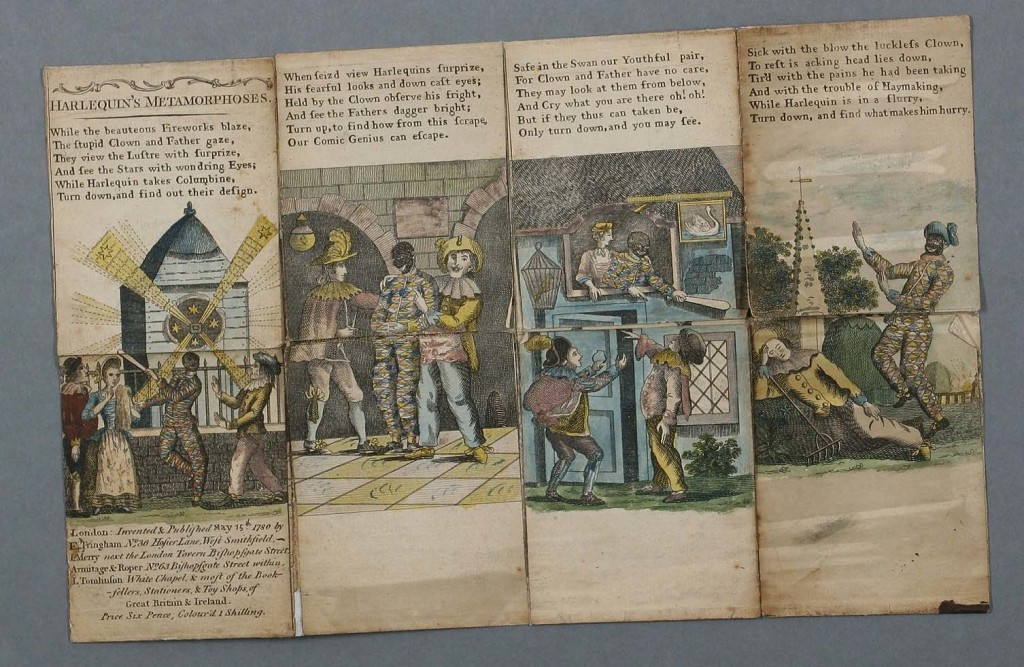 HARLEQUIN'S METAMORPHOSES.
While the beauteous Fireworks blaze,
The stupid Clown and Father gaze,
They view the Lustre with surprize,
And see the Stars with wondring Eyes;
While Harlequin takes Columbine,
Turn down, and find out their design.
London: Invented & Publish'd May 15th 1780 by
E. Tringham No. 36 Hosier Lane, West Smithfield,
I Merry next the London Tavern Bishopsgate Street
Armitage & Roper No. 63 Bishopsgate Street within,
I. Tomlinson White Chapel, & most of the Book-
-sellers, Stationers, & Toy Shops, of
Great Britain & Ireland.
Price Six Pence, Colour'd 1 Shilling.
When seiz'd view Harlequins surprize,
His fearful looks and down cast eyes;
Held by the Clown observe his fright,
And see the Fathers dagger bright;
Turn up, to find how from this scrape,
Our Comic Genius can escape.
Safe in the Swan our Youthful pair,
For Clown and Father have no care,
They may look at them from below,
And Cry what you are there oh! oh!
But if they thus can taken be,
Only turn down, and you may see.
Sick with the blow the luckless Clown,
To rest is acking head lies down,
Tir'd with the pains he had been taking
And with the trouble of Haymaking,
While Harlequin is in a flurry,
Turn down, and find what makes him hurry.